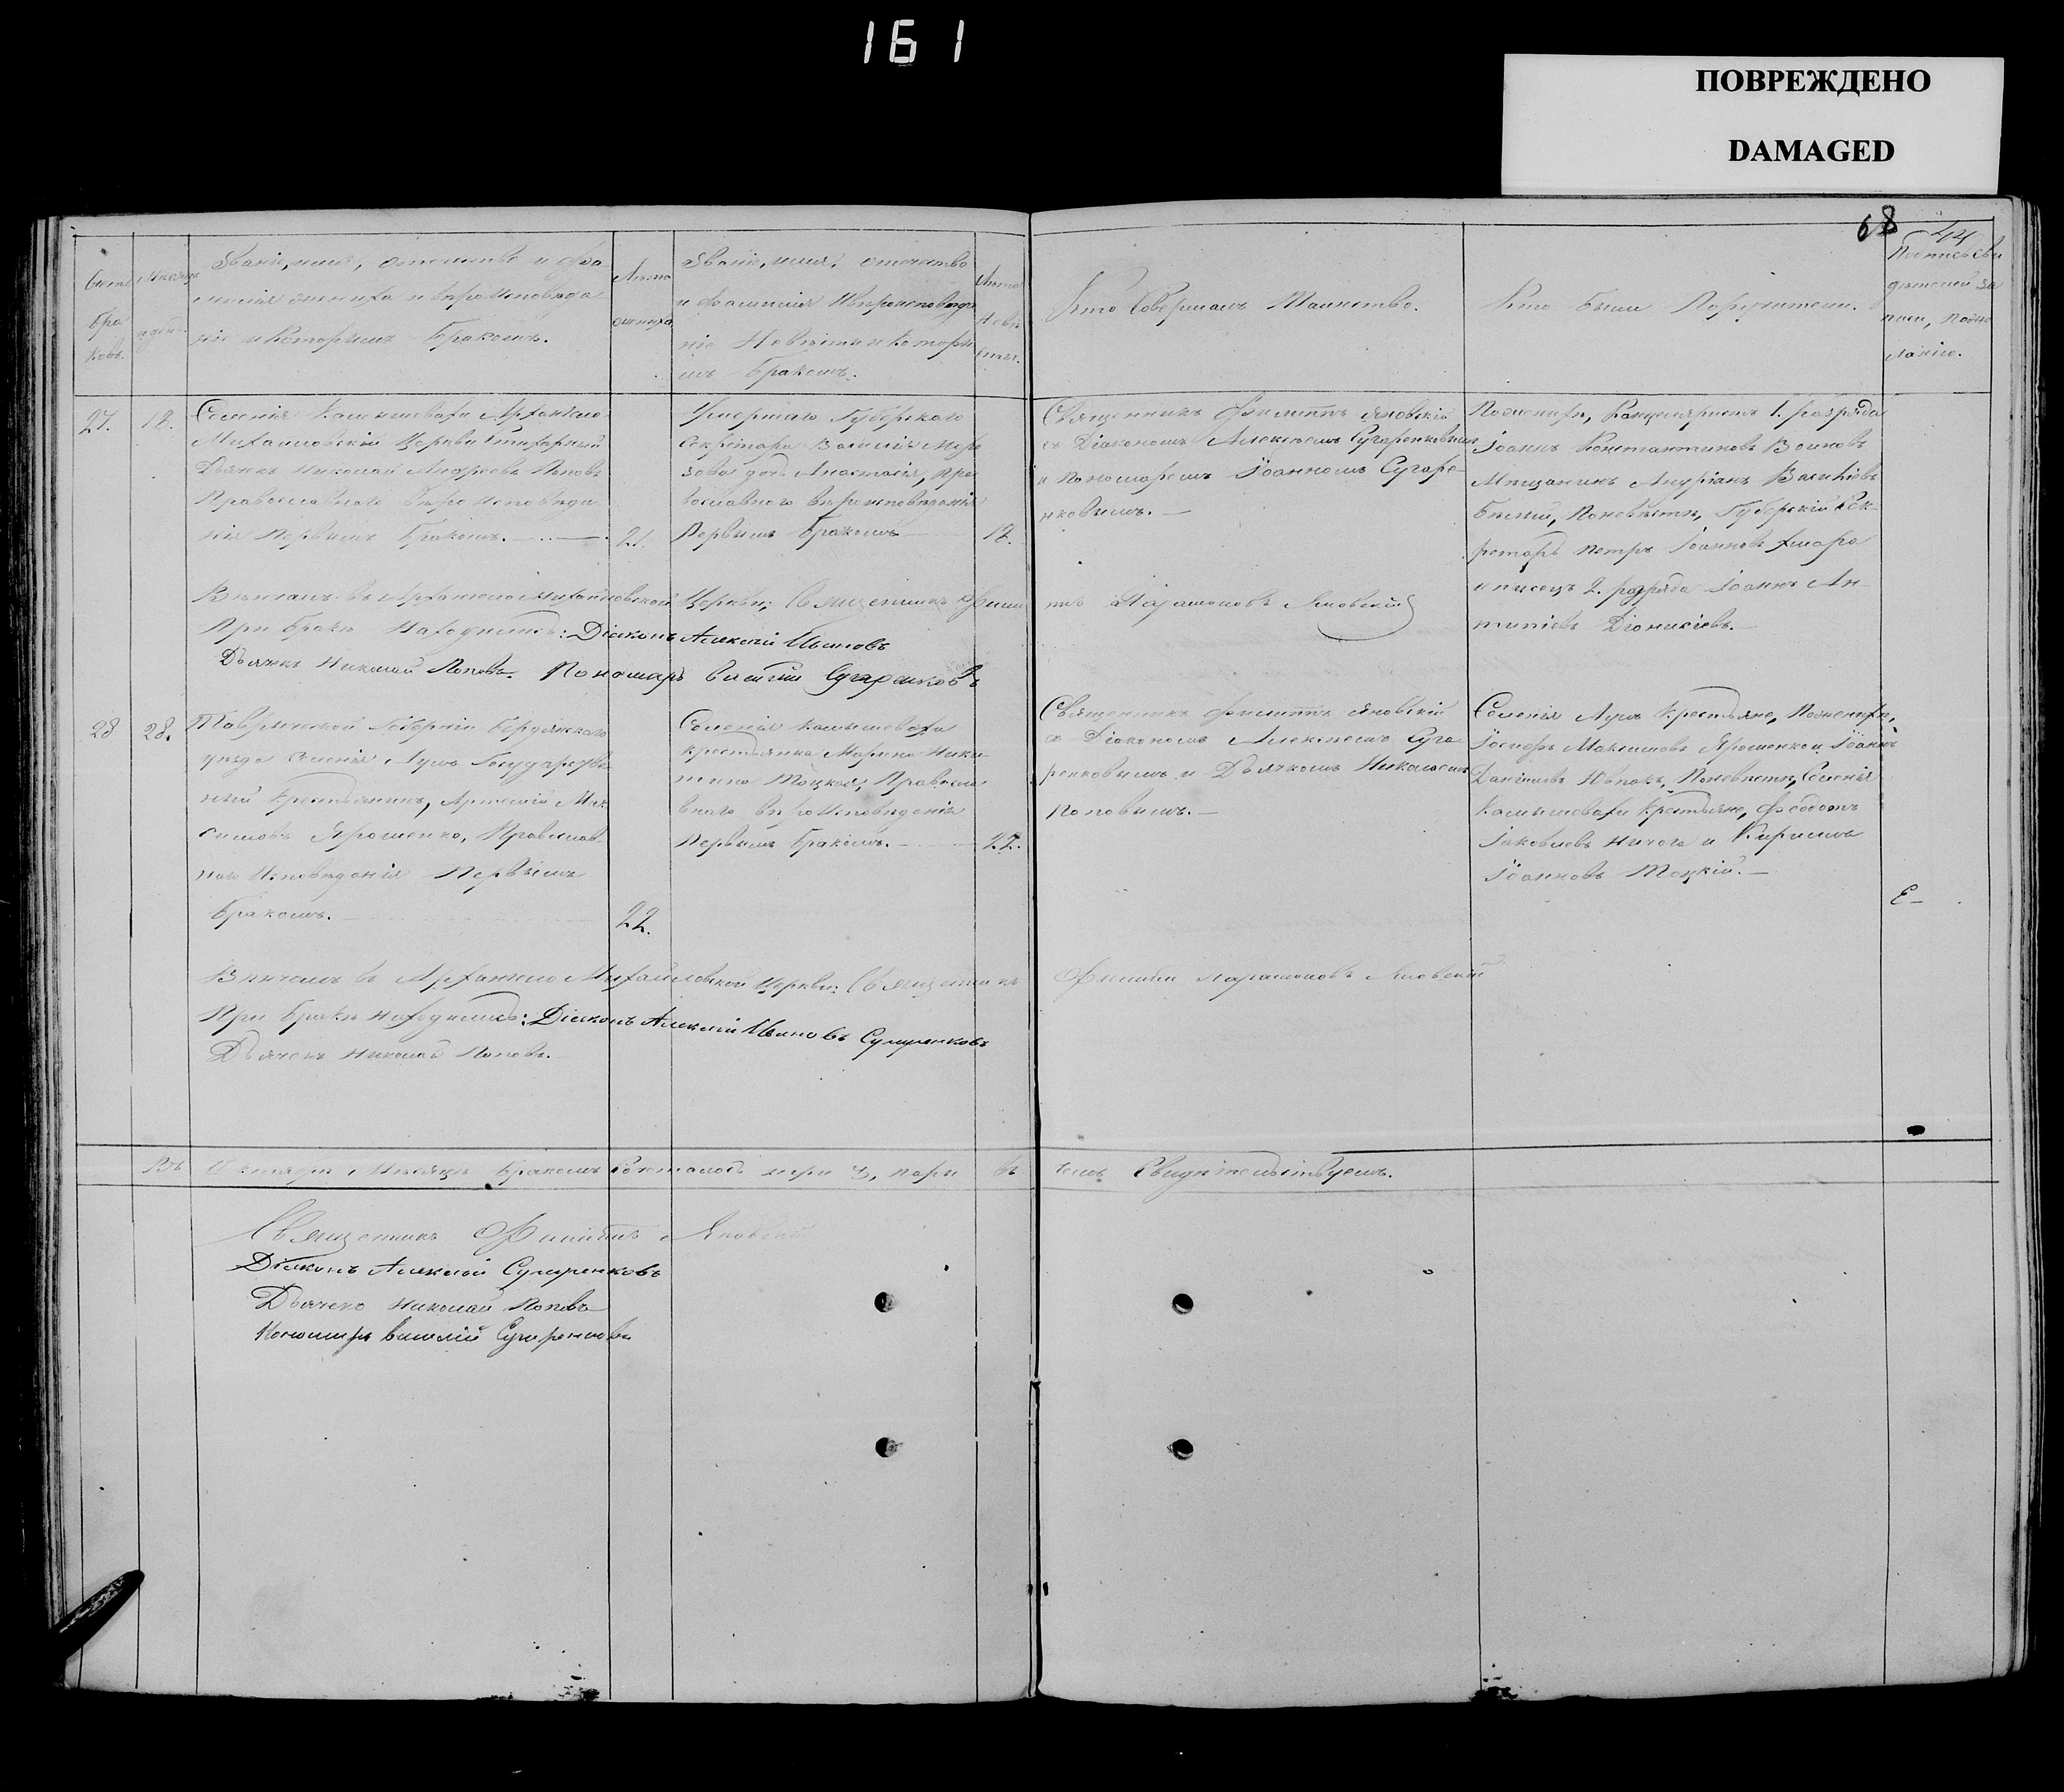 161
ПОВРЕЖДЕНО
DAMAGED
68
44
Счетъ
бра
ковъ.
Мѣсяцъ
и день
Званіе, имя, отечество и фа
милія жениха и вѣроисповѣда
ніе и которымъ бракомъ.
Лѣта
жениха
Званіе, имя, отечество
и фамилія и вѣроисповѣда
ніе невѣсты и которы
мъ бракомъ.
Лѣта
невѣ
сты.
Кто совершалъ таинство.
Кто были поручители.
Подпись сви
дѣтелей за
писи, по же
ланію.
27.
18.
Селенія Камышевахи Архангело
Михайловской Церкви Стихарный
Дьячекъ Николай Андреевъ Поповъ
Православнаго вѣроисповѣда
нія первымъ бракомъ.
21.
Умершаго Губерскаго
Секретаря Василія Моро
зова дочь Анастасія, пра
вославнаго вѣроисповѣданія
Первымъ бракомъ
18.
Священникъ Филиппъ Яновскій
съ Діакономъ Алексѣемъ Сугаренковымъ
и Пономаремъ Іоанномъ Сугаре-
нковымъ. —
По женихѣ, Канцеляристъ 1. разряда
Іоаннъ Константиновъ Воиновъ
Мѣщанинъ Андріанъ Василіевъ
Бѣлый, По невѣстѣ, Губерскій Сек-
ретарь Петръ Іоанновъ Хмара
и писецъ 2. разряда Іоаннъ Ан-
типіевъ Діонисіевъ. —
Вѣнчалъ въ Архангело Михайловской Церкви; Священникъ Фили
ппъ Парамоновъ Яновскій
При бракѣ находились: Діаконъ Алексій Ивановъ
Дьячекъ Николай Поповъ. Пономарь Василій Сугаренковъ
28
28.
Таврической Губерніи Бердянскаго
уѣзда селенія Луш Государстве
нный крестьянинъ, Артемій Мак
симовъ Ярошенко, Православ
наго исповѣданія Первымъ
бракомъ.
22.
Селенія Камышевахи
крестьянка Марина Ники
тина Тоцкая, Правосла
внаго вѣроисповѣданія
Первымъ бракомъ.
22.
Священникъ Филиппъ Яновскій
съ Діакономъ Алексѣемъ Суга
ренковымъ и Дьячкомъ Николаемъ
Поповымъ. —
Селенія Луш крестьяне, По женихѣ,
Іосифъ Максимовъ Ярошенко и Іоаннъ
Даніиловъ По невѣстѣ, Селенія
Камышевахи крестьяне, Ѳеодотъ
Іаковлевъ и Кириллъ
Іоанновъ Тоцкій. —
Вѣнчалъ въ Архангело Михайловской Церкви: Священникъ
Филиппъ Парамоновъ Яновскій
При бракѣ находились: Діаконъ Алексій Ивановъ Сугаренковъ
Дьячекъ Николай Поповъ.
Въ Октябрѣ мѣсяцѣ бракомъ сочеталось три 3, пары въ чемъ свидѣтельствуемъ.
Священникъ Филиппъ Яновскій
Діаконъ Алексій Сугаренковъ
Дьячекъ Николай Поповъ
Пономарь Василій Сугаренковъ